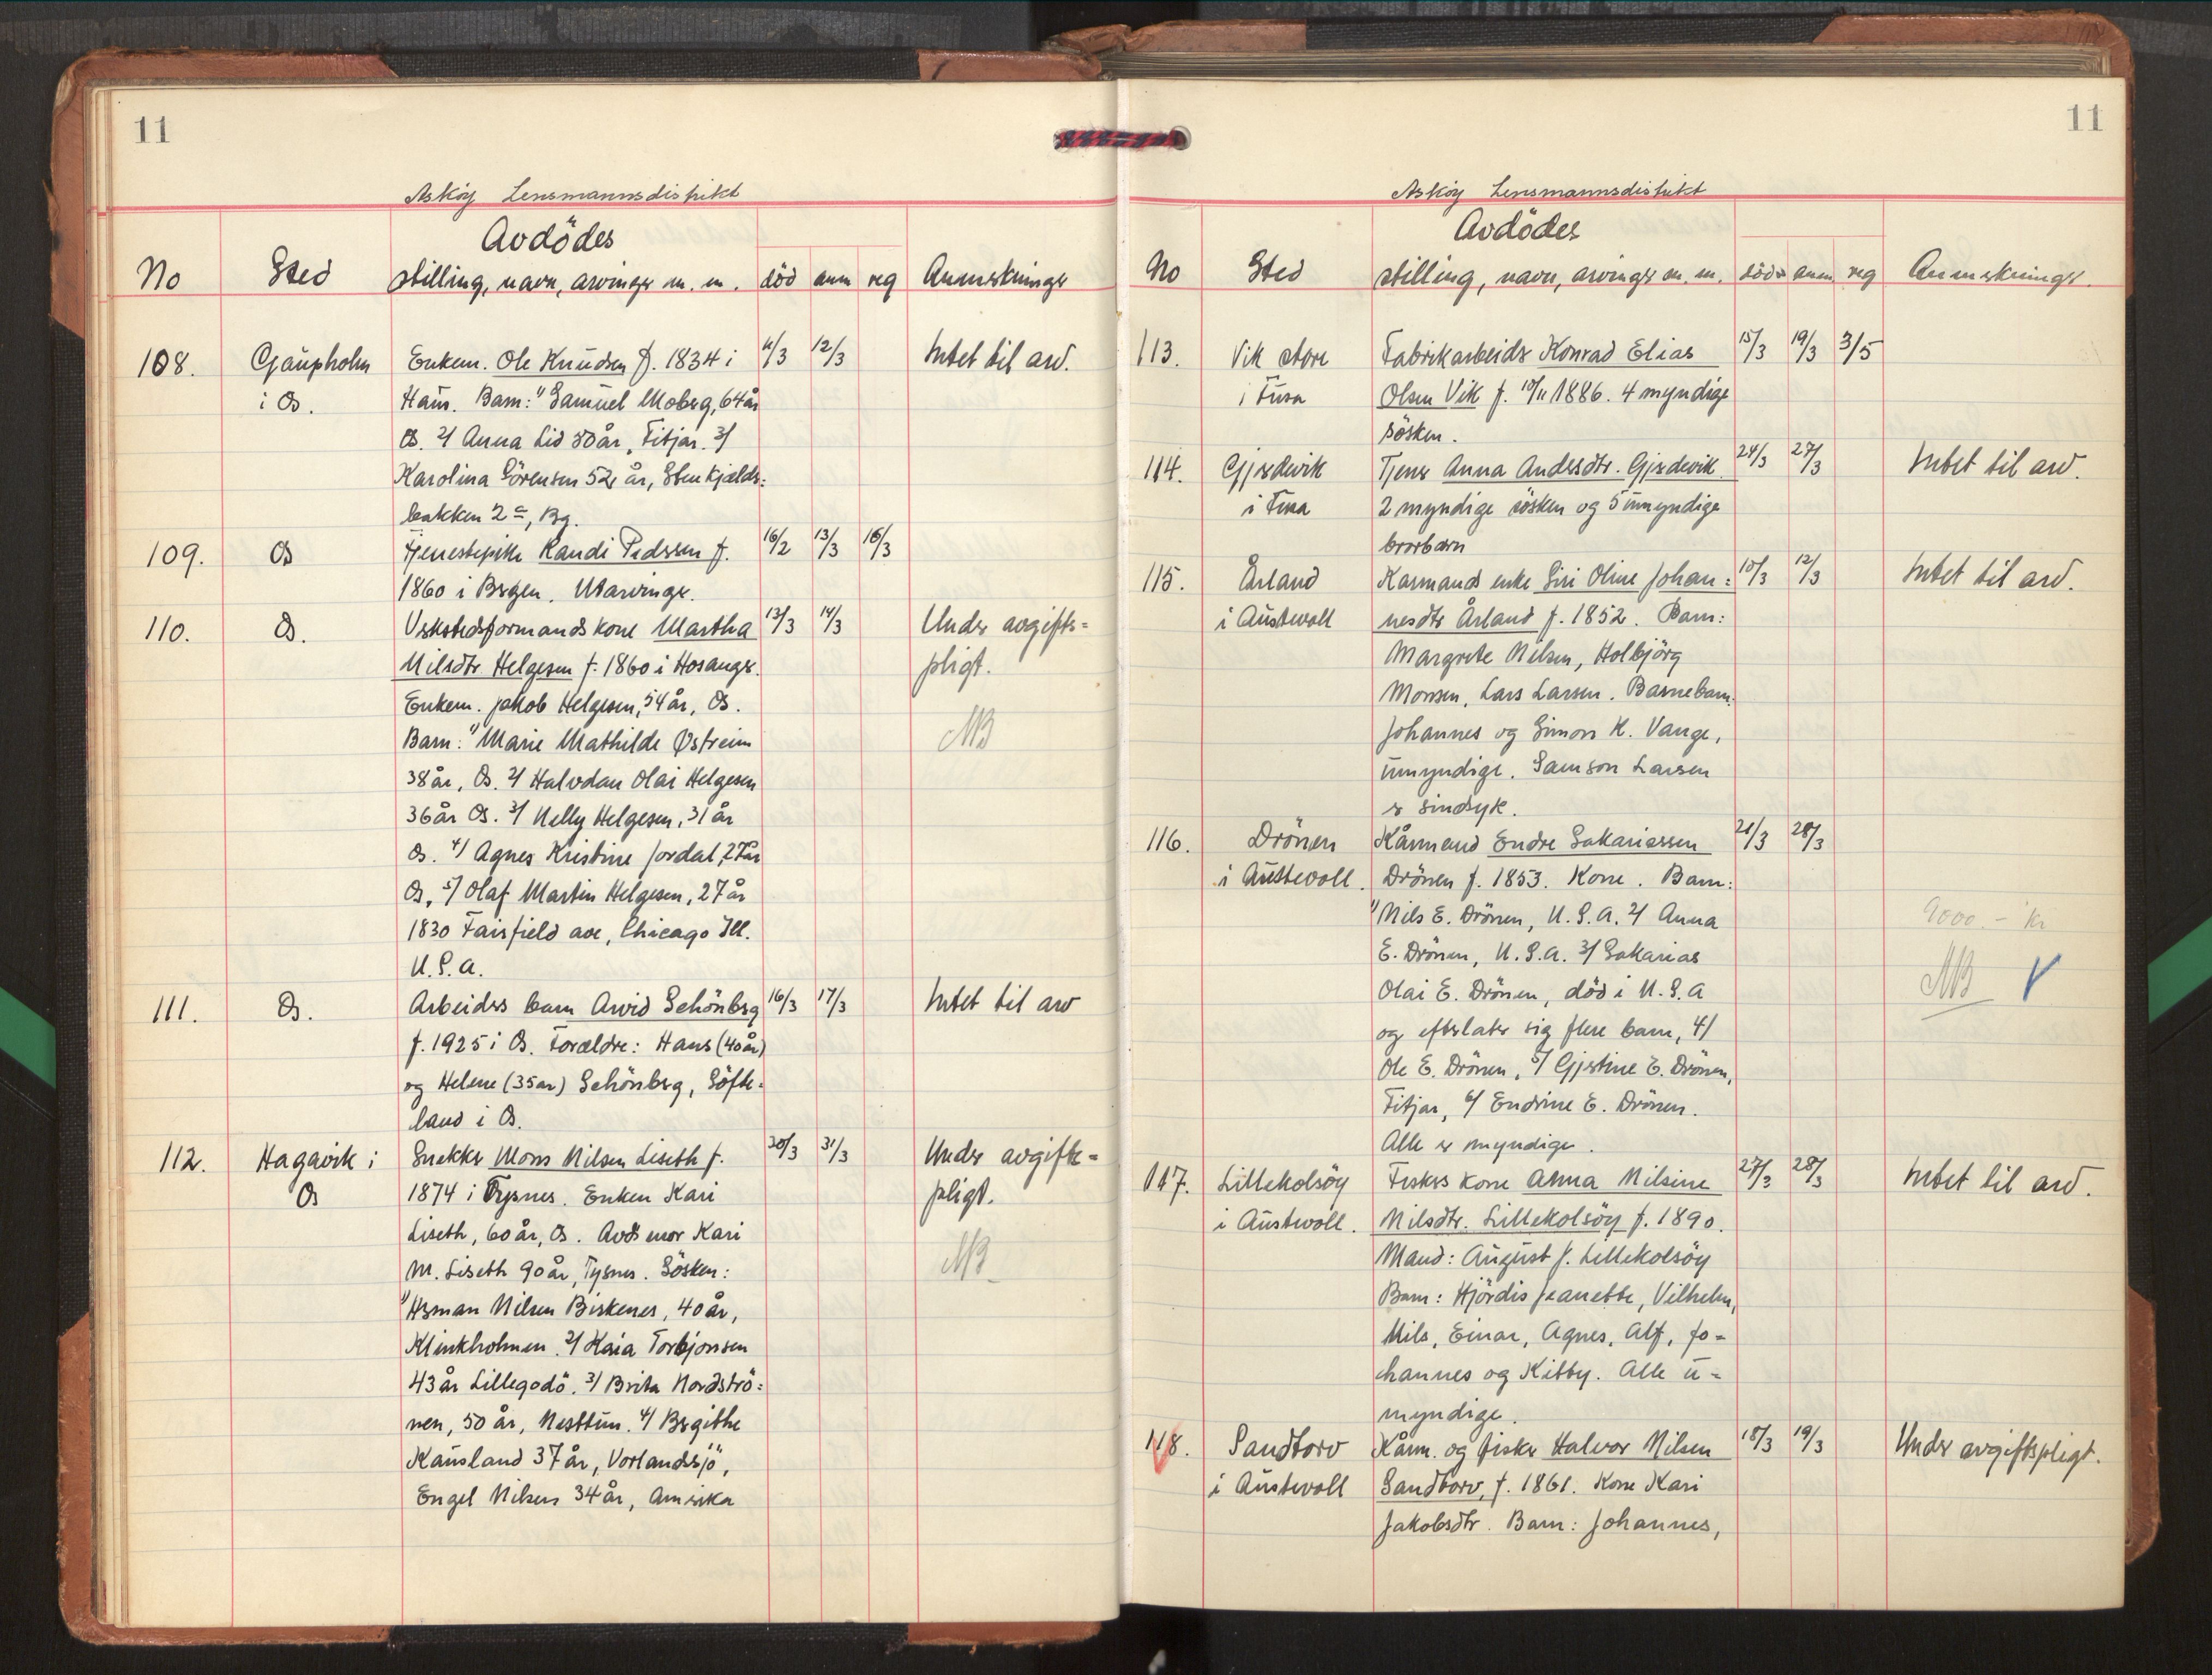 11
Askøy Lensmannsdistrikt
Avdödes
No Sted stilling, navn, arvinger m. m. död anm reg Anmerkninger
108. Gjøupholm Enkem. Ole Knudsen f. 1834 i 11/3 12/3 Intet til arv.
i Os. Haus. Barn: 1/ Samuel Moberg, 64 år
Os. 2/ Anna Lid 50 år, Fitjar. 3/
Karolina Sörensen 52 år, Stenkjelds=
bakken 2 a, Bg.
109. Os Tjenestepike Randi Pedersen f. 16/2 13/3 16/3
1860 i Bergen. Utarvinger.
110. Os. Verkstedsformands kone Martha 13/3 14/3 Under avgifts=
Nilsdtr. Helgesen f. 1860 i Hosanger. pligt.
Enkem. Jakob Helgesen, 54 år, Os.
Barn: 1/ Marie Mathilde Østreim NB
38 år, Os. 2/ Halvdan Olai Helgesen
36 år Os. 3/ Nelly Helgesen, 31 år
Os. 4/ Agnes Kristine Jordal, 27 år
Os, 5/ Olaf Martin Helgesen, 27 år
1830 Fairfield ave, Chicago Ill.
U.S.A.
111. Os. Arbeiders barn Arvid Schönberg 16/3 17/3 Intet til arv
f. 1925 i Os. Forældre: Hans (40 år)
og Helene (35 år) Schönberg, Söfte=
land i Os.
112. Hagavik i Snekker Mons Nilsen Liseth f. 30/3 31/3 Under avgifts=
Os 1874 i Tysnes. Enken Kari pligt.
Liseth, 60 år, Os. Avds mor Kari
M. Liseth 90 år, Tysnes. Sösken: NB
1/ Herman Nilsen Birkenes, 40 år,
Klinkholmen. 2/ Kaia Torbjørnsen
43 år Lillegodö. 3/ Brita Nordströ=
nen, 50 år, Nesttun. 4/ Bergithe
Kausland 37 år, Vorlandsjö,
Engel Nilsen 34 år, Amerika
11
Askøy Lensmannsdistrikt
Avdödes
No Sted stilling, navn, arvinger m. m. död anm reg Anmerkninger.
113. Vik store Fabrikarbeider Konrad Elias 15/3 19/3 3/5
i Fusa Olsen Vik f. 10/11 1886. 4 myndige
sösken.
114. Gjerdevik Tjener Anna Andersdtr. Gjerdevik. 24/3 27/3 Intet til arv.
i Fusa 2 myndige sösken og 5 umyndige
brorbarn
115. Årland Kårmands enke Siri Oline Johan= 10/3 12/3 Intet til arv.
i Austevoll nesdtr Årland f. 1852. Barn:
Margrete Nilsen, Holbjörg
Monsen, Lars Larsen. Barnebarn:
Johannes og Simon K. Vange,
umyndige. Samson Larsen
er sindsyk.
116. Drönen Kårmand Endre Sakariassen 21/3 28/3
i Austevoll. Drönen f. 1853. Kone. Barn:
1/ Nils E. Drönen, U.S.A. 2/ Anna 9000.- kr
E. Drönen, U.S.A. 3/ Sakarias
Olai E. Drönen, död i U.S.A NB V
og efterlater sig flere barn, 4/
Ole E. Drönen, 5/ Gjertine E. Drönen,
Fitjar, 6/ Endrine E. Drönen.
Alle er myndige.
117. Lillekolsöy Fiskers kone Anna Nilsine 27/3 28/3 Intet til arv.
i Austevoll. Nilsdtr. Lillekolsöy f. 1890.
Mand: August J. Lillekolsöy
Barn: Hjördis Jeanette, Vilhelm,
Nils, Einar, Agnes, Alf, Jo=
hannes og Kitty. Alle u=
myndige.
118. Sandtorv Kårm. og fisker Halvor Nilsen 18/3 19/3 Under avgiftspligt.
i Austevoll Sandtorv, f. 1861. Kone Kari
Jakobsdtr. Barn: Johannes,